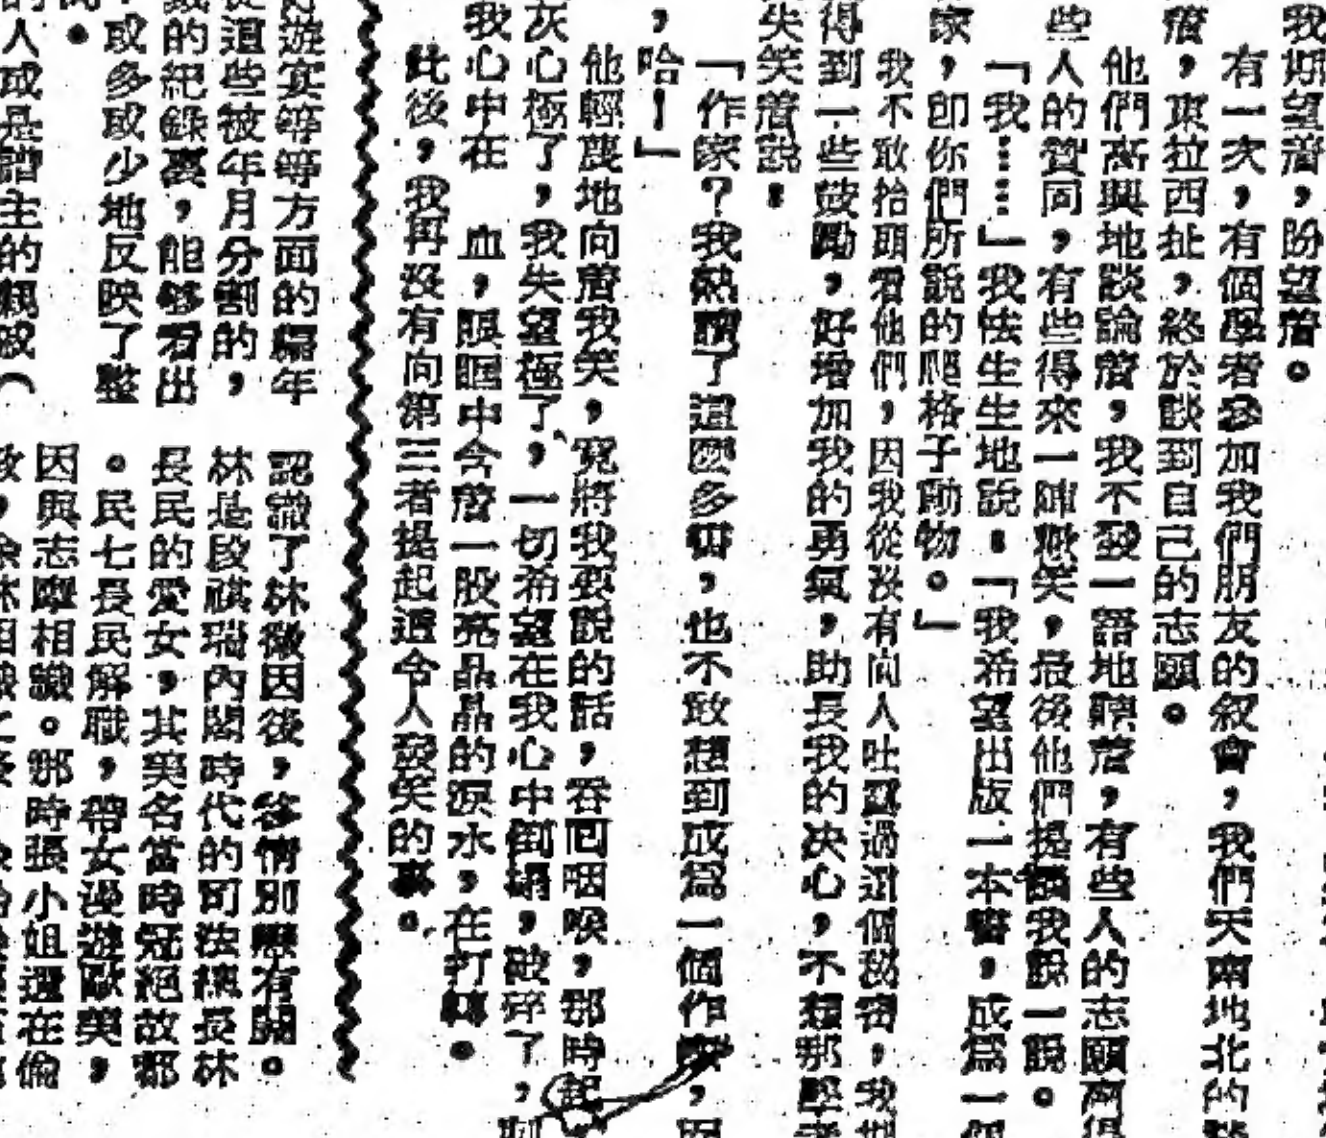 我期望着，盼望着。
有一次，有個學者參加我們朋友的叙會，我們天南地北的
着，東拉西扯，終於談到自己的志願。
他們高興地談論着，我不發一語地聽着，有些人的志願兩得
些人的贊同，有些得來一陣歡笑，最後他們提議我說一說。
「我……」我怯生生地說：「我希望出版一本書，成爲一個
家，即你們所說的爬格子動物。」
我不敢抬頭看他們，因我從沒有向人吐露過這個秘密，我期
得到一些鼓勵，好增加我的勇氣，助長我的决心，不想那學者
失笑着說：
「作家？我熱讀了這麽多書，也不敢想到成爲一個作家，因
，哈！」
他輕蔑地向着我笑，竟將我要說的話，吞回咽喉，那時起
灰心極了，我失望極了，一切希望在我心中倒塌，破碎了，
我心中在　血，眼眶中含着一股亮晶晶的淚水，在打轉。
此後，我再沒有向第三者提起這令人發笑的事。
遊宴等等方面的編年
從這些被年月分割的，
的紀錄裏，能够看出
或多或少地反映了整
的人或是譜主的親被（
認識了林徽因後，移情別戀有關。
林是段祺瑞內閣時代的司法總長林
長民的愛女，其美名當時冠絕故都
。民七長民解職，帶女漫遊歐美，
因與志摩相識。那時張小姐還在倫